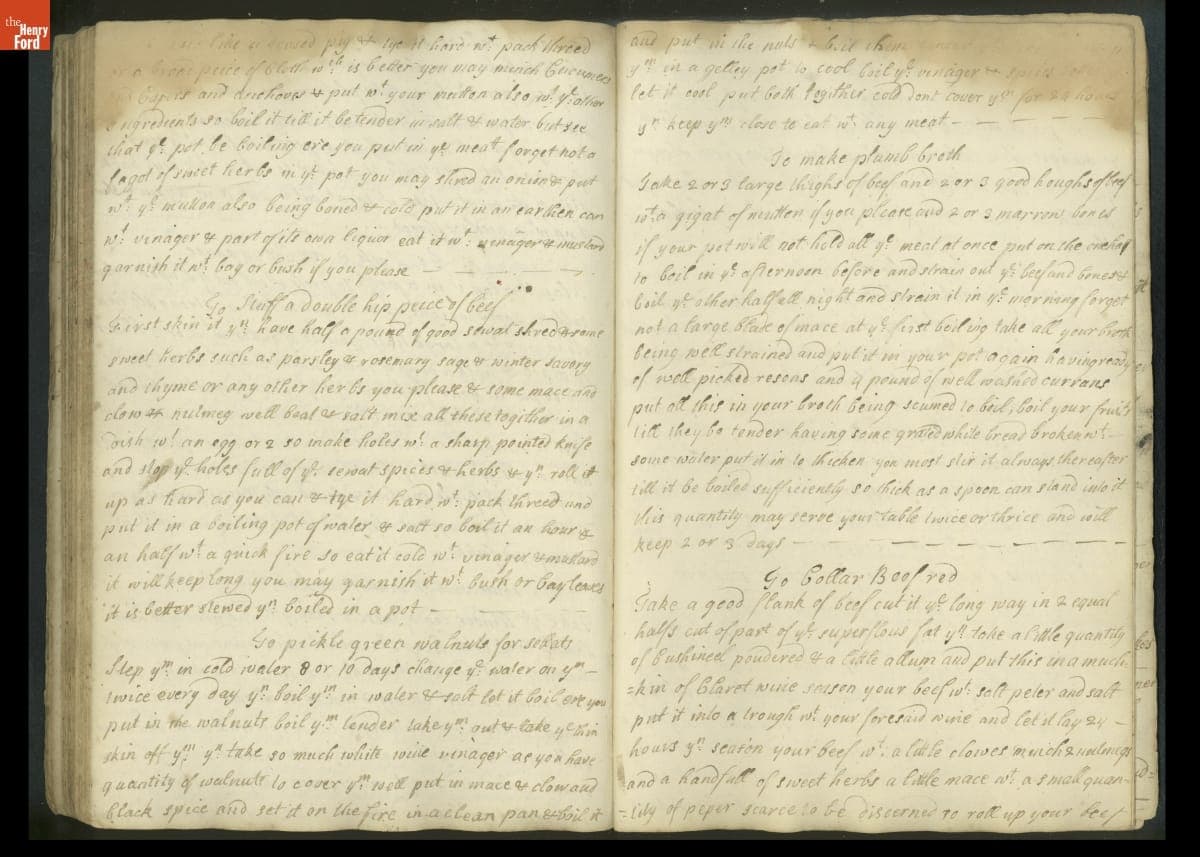 the
Henry
Ford
like a pey & tye it hard wt. pack threed
or a broad peice of Cloth wch. is better you may minch Cucumers
Capers and anchoves & put wt. your mutton also wt. ye. other
Ingredients so boil it till it be tender in salt & water but see
that ye. pot be boiling ere you put in ye. meat forget not a
fagot of sweet herbs in ye. pot you may shred an onion & put
wt. ye. mutton also being boned & cold put it in an earthen can
wt. vinager & part of its own liquor eat it wt. vinager & mustard
garnish it wt. bay or bush if you please
To Stuff a double hip peece of beef
First skin it yn. have half a pound of good sewat shred & some
sweet herbs such as parsley & rosemary sage & winter savory
and thyme or any other herbs you please & some mace and
clow & nutmeg well beat & salt mix all these together in a
dish wt. an egg or 2 so make holes wt. a sharp pointed knife
and stop ye. holes full of ye. sewat spices & herbs & yn. roll it
up as hard as you can & tye it hard wt. pack threed and
put it in a boiling pot of water & salt so boil it an hour &
an half wt. a quick fire so eat it cold wt. vinager & mustard
it will keep long you may garnish it wt. bush or bay leaves
it is better stewed yn. boiled in a pot
To pickle green walnuts for sallats
Step ym. in cold water 8 or 10 days change ye. water on ym.
twice every day yn. boil ym. in water & salt let it boil ere you
put in the walnuts boil ym. tender take ym. out & take ye thin
skin off ym. yn. take so much white wine vinager as you have
quantity of walnuts to cover ym. well put in mace & clow and
black spice and set it on the fire in a clean pan & boil it
and put in the nuts & boil them
ym. in a gelley pot to cool boil ye. vinager & spices
let it cool put both together cold dont cover ym. for 24 hours
yn. keep ym. close to eat wt. any meat
To make plumb broth
Take 2 or 3 large thighs of beef and 2 or 3 good houghs of beef
wt. a gigat of mutton if you please and 2 or 3 marrow bones
if your pot will not hold all ye. meat at once put on the one half
to boil in ye. afternoon before and strain out ye. beef and bones &
boil ye. other half all night and strain it in ye. morning forget
not a large blade of mace at ye. first boiling take all your broth
being well strained and put it in your pot again having ready
of well picked resons and 4 pound of well washed currans
put all this in your broth being scumed to boil, boil your fruits
till they be tender having some grated white bread broken wt.
some water put it in to thicken you most stir it always thereafter
till it be boiled sufficiently so thick as a spoon can stand into it
this quantity may serve your table twice or thrice and will
keep 2 or 3 days
To Collar Beef red
Take a good flank of beef cut it ye. long way in 2 equal
halfs cut of part of ye. superflous fat yn. take a little quantity
of Cushineel poudered & a little allum and put this in a much=
=kin of Claret wine season your beef wt. salt peter and salt
put it into a trough wt. your foresaid wine and let it lay 24
hours yn. seaton your beef wt. a little clowes minch & nutmegs
and a handfull of sweet herbs a little mace wt. a small quan=
=tity of peper scarce to be discerned to roll up your beef